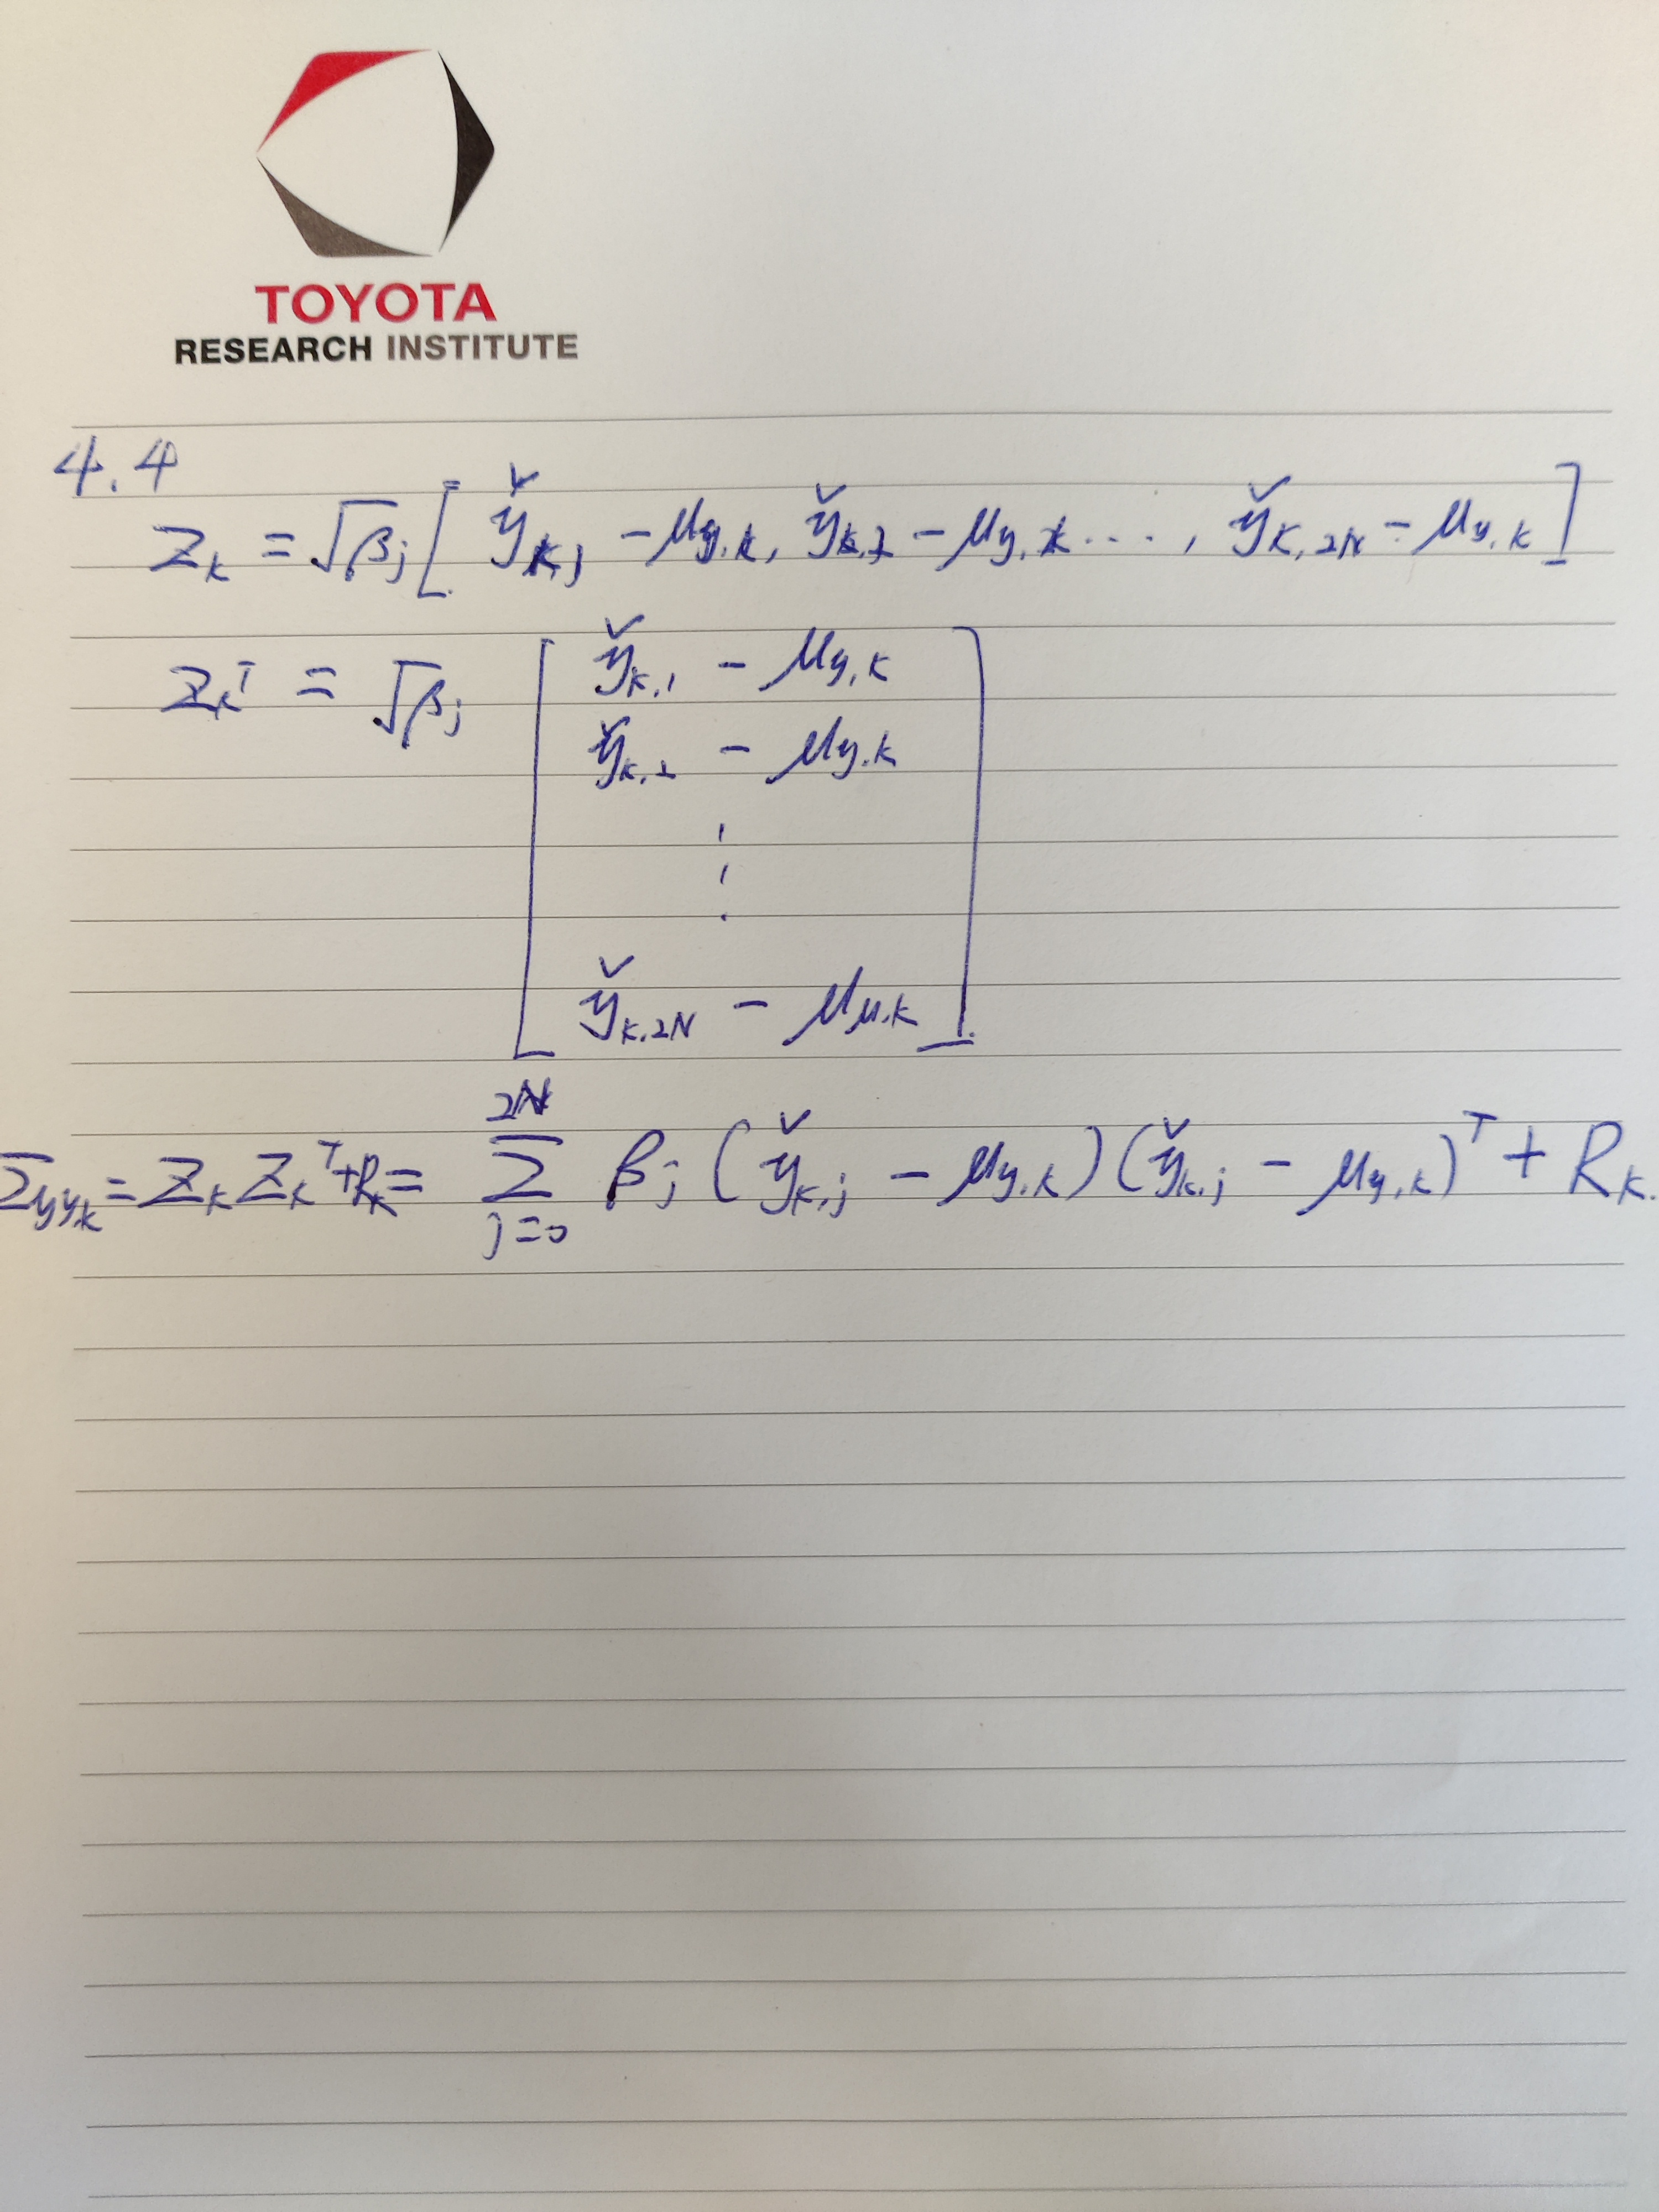 TOYOTA
RESEARCH INSTITUTE
4.4
Z_k = √β_j [ y̌_{k,j} - μ_{y,k}, y̌_{k,2} - μ_{y,k} ..., y̌_{k,2N} - μ_{y,k} ]
Z_k^T = √β_j [ y̌_{k,1} - μ_{y,k}
y̌_{k,2} - μ_{y,k}
⋮
y̌_{k,2N} - μ_{μ,k} ]
Σ_{yy_k} = Z_k Z_k^T + R_k = Σ_{j=0}^{2N} β_j (y̌_{k,j} - μ_{y,k})(y̌_{k,j} - μ_{y,k})^T + R_k.